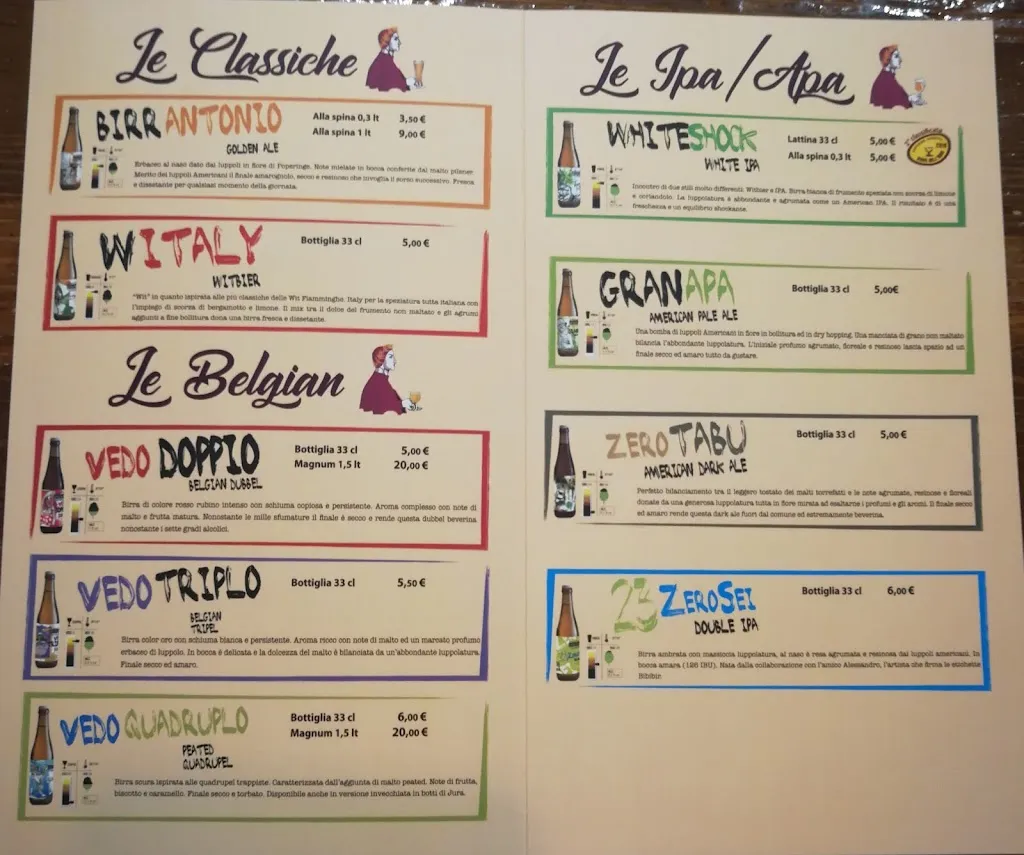 Le Classiche
BIRRANTONIO
GOLDEN ALE
Alla spina 0,3 lt 3,50 €
Alla spina 1 lt 9,00 €
Erbaceo al naso dato dai luppoli in fiore di Poperinge. Note mielate in bocca conferite dal malto pilsner.
Merito dei luppoli Americani il finale amarognolo, secco e resinoso che invoglia il sorso successivo. Fresca
e dissetante per qualsiasi momento della giornata.
WITALY
WITBIER
Bottiglia 33 cl 5,00 €
"Wit" in quanto ispirata alle più classiche delle Wit Fiamminghe. Italy per la speziatura tutta italiana con
l'impiego di scorza di bergamotto e limone. Il mix tra il dolce del frumento non maltato e gli agrumi
aggiunti a fine bollitura dona una birra fresca e dissetante.
Le Belgian
VEDO DOPPIO
BELGIAN DUBBEL
Bottiglia 33 cl 5,00 €
Magnum 1,5 lt 20,00 €
Birra di colore rosso rubino intenso con schiuma copiosa e persistente. Aroma complesso con note di
malto e frutta matura. Nonostante le mille sfumature il finale è secco e rende questa dubbel beverina
nonostante i sette gradi alcolici.
VEDO TRIPLO
BELGIAN
TRIPEL
Bottiglia 33 cl 5,50 €
Birra color oro con schiuma bianca e persistente. Aroma ricco con note di malto ed un marcato profumo
erbaceo di luppolo. In bocca è delicata e la dolcezza del malto è bilanciata da un'abbondante luppolatura.
Finale secco ed amaro.
VEDO QUADRUPLO
PEATED
QUADRUPEL
Bottiglia 33 cl 6,00 €
Magnum 1,5 lt 20,00 €
Birra scura ispirata alle quadrupel trappiste. Caratterizzata dall'aggiunta di malto peated. Note di frutta,
biscotto e caramello. Finale secco e torbato. Disponibile anche in versione invecchiata in botti di Jura.
Le Ipa/Apa
WHITESHOCK
WHITE IPA
Lattina 33 cl 5,00 €
Alla spina 0,3 lt 5,00 €
Incontro di due stili molto differenti: Witbier e IPA. Birra bianca di frumento speziata con scorza di limone
e coriandolo. La luppolatura è abbondante e agrumata come un American IPA. Il risultato è di una
freschezza e un equilibrio shockante.
GRANAPA
AMERICAN PALE ALE
Bottiglia 33 cl 5,00€
Una bomba di luppoli Americani in fiore in bollitura ed in dry hopping. Una manciata di grano non maltato
bilancia l'abbondante luppolatura. L'iniziale profumo agrumato, floreale e resinoso lascia spazio ad un
finale secco ed amaro tutto da gustare.
ZERO TABU
AMERICAN DARK ALE
Bottiglia 33 cl 5,00 €
Perfetto bilanciamento tra il leggero tostato dei malti torrefatti e le note agrumate, resinose e floreali
donate da una generosa luppolatura tutta in fiore mirata ad esaltarne i profumi e gli aromi. Il finale secco
ed amaro rende questa dark ale fuori dal comune ed estremamente beverina.
23 ZEROSEI
DOUBLE IPA
Bottiglia 33 cl 6,00 €
Birra ambrata con massiccia luppolatura, al naso è resa agrumata e resinosa dai luppoli americani. In
bocca amara (126 IBU). Nata dalla collaborazione con l'amico Alessandro, l'artista che firma le etichette
Bibibir.